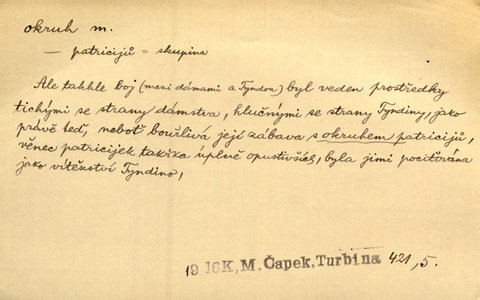 okruh m.
— patricijů = skupina
Ale takhle boj (mezi dámami a Tyndou) byl veden prostředky
tichými se strany dámstva, hlučnými se strany Tyndiny, jako
právě teď, neboť bouřlivá její zábava s okruhem patricijů,
věnec patricijek takřka úplně opustivších, byla jimi pociťována
jako vítězství Tyndino,
19 16 K. M. Čapek, Turbina 421, 5.